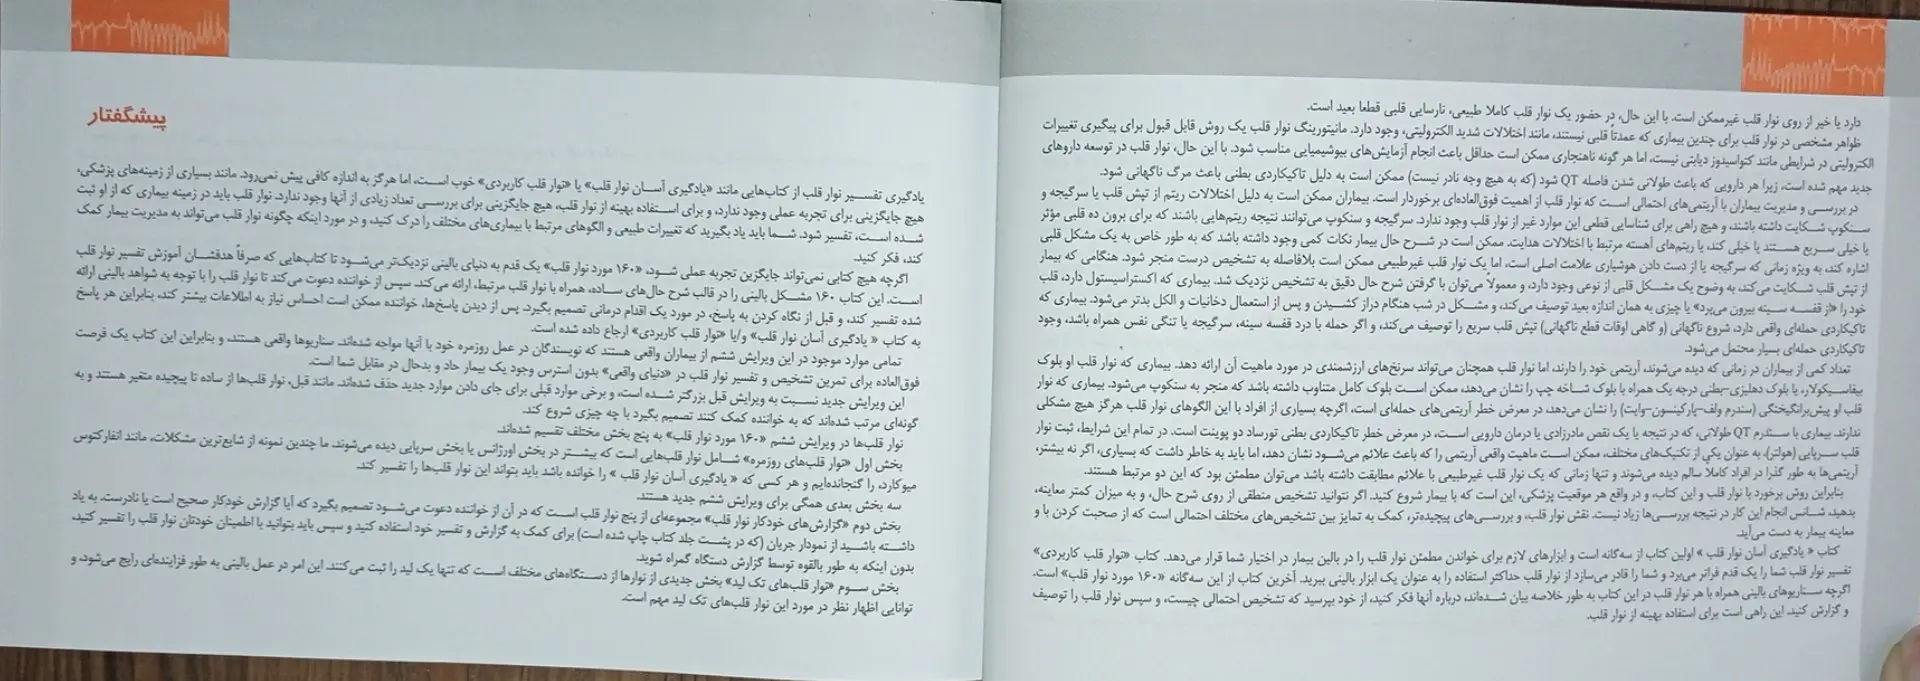 دارد یا خیر از روی نوار قلب غیرممکن است. با این حال، در حضور یک نوار قلب کاملا طبیعی، نارسایی قلبی قطعا بعید است.
ظواهر مشخصی در نوار قلب برای چندین بیماری که عمدتاً قلبی نیستند، مانند اختلالات شدید الکترولیتی، وجود دارد. مانیتورینگ نوار قلب یک روش قابل قبول برای پیگیری تغییرات
الکترولیتی در شرایطی مانند کتواسیدوز دیابتی نیست، اما هر گونه ناهنجاری ممکن است حداقل باعث انجام آزمایش‌های بیوشیمیایی مناسب شود. با این حال، نوار قلب در توسعه داروهای
جدید مهم شده است، زیرا هر دارویی که باعث طولانی شدن فاصله QT شود (که به هیچ وجه نادر نیست) ممکن است به دلیل تاکیکاردی بطنی باعث مرگ ناگهانی شود.
در بررسی و مدیریت بیماران با آریتمی‌های احتمالی است که نوار قلب از اهمیت فوق‌العاده‌ای برخوردار است. بیماران ممکن است به دلیل اختلالات ریتم از تپش قلب یا سرگیجه و
سنکوپ شکایت داشته باشند، و هیچ راهی برای شناسایی قطعی این موارد غیر از نوار قلب وجود ندارد. سرگیجه و سنکوپ می‌توانند نتیجه ریتم‌هایی باشند که برای برون ده قلبی مؤثر
یا خیلی سریع هستند یا خیلی کند، یا ریتم‌های آهسته مرتبط با اختلالات هدایت. ممکن است در شرح حال بیمار نکات کمی وجود داشته باشد که به طور خاص به یک مشکل قلبی
اشاره کند، به ویژه زمانی که سرگیجه یا از دست دادن هوشیاری علامت اصلی است، اما یک نوار قلب غیرطبیعی ممکن است بلافاصله به تشخیص درست منجر شود. هنگامی که بیمار
از تپش قلب شکایت می‌کند، به وضوح یک مشکل قلبی از نوعی وجود دارد، و معمولاً می‌توان با گرفتن شرح حال دقیق به تشخیص نزدیک شد. بیماری که اکستراسیستول دارد، قلب
خود را «از قفسه سینه بیرون می‌برد» یا چیزی به همان اندازه بعید توصیف می‌کند، و مشکل در شب هنگام دراز کشیدن و پس از استعمال دخانیات و الکل بدتر می‌شود. بیماری که
تاکیکاردی حمله‌ای واقعی دارد، شروع ناگهانی (و گاهی اوقات قطع ناگهانی) تپش قلب سریع را توصیف می‌کند، و اگر حمله با درد قفسه سینه، سرگیجه یا تنگی نفس همراه باشد، وجود
تاکیکاردی حمله‌ای بسیار محتمل می‌شود.
تعداد کمی از بیماران در زمانی که دیده می‌شوند، آریتمی خود را دارند، اما نوار قلب همچنان می‌تواند سرنخ‌های ارزشمندی در مورد ماهیت آن ارائه دهد. بیماری که نوار قلب او بلوک
بیفاسیکولار، یا بلوک دهلیزی-بطنی درجه یک همراه با بلوک شاخه چپ را نشان می‌دهد، ممکن است بلوک کامل متناوب داشته باشد که منجر به سنکوپ می‌شود. بیماری که نوار
قلب او پیش‌برانگیختگی (سندرم ولف-پارکینسون-وایت) را نشان می‌دهد، در معرض خطر آریتمی‌های حمله‌ای است، اگرچه بسیاری از افراد با این الگوهای نوار قلب هرگز هیچ مشکلی
ندارند. بیماری با سندرم QT طولانی، که در نتیجه یا یک نقص مادرزادی یا درمان دارویی است، در معرض خطر تاکیکاردی بطنی تورساد دو پوینت است. در تمام این شرایط، ثبت نوار
قلب سرپایی (هولتر)، به عنوان یکی از تکنیک‌های مختلف، ممکن است ماهیت واقعی آریتمی را که باعث علائم می‌شود نشان دهد، اما باید به خاطر داشت که بسیاری، اگر نه بیشتر،
آریتمی‌ها به طور گذرا در افراد کاملاً سالم دیده می‌شوند و تنها زمانی که یک نوار قلب غیرطبیعی با علائم مطابقت داشته باشد می‌توان مطمئن بود که این دو مرتبط هستند.
بنابراین روش برخورد با نوار قلب و این کتاب، و در واقع هر موقعیت پزشکی، این است که با بیمار شروع کنید. اگر نتوانید تشخیص منطقی از روی شرح حال، و به میزان کمتر معاینه،
بدهید، شانس انجام این کار در نتیجه بررسی‌ها زیاد نیست. نقش نوار قلب، و بررسی‌های پیچیده‌تر، کمک به تمایز بین تشخیص‌های مختلف احتمالی است که از صحبت کردن با و
معاینه بیمار به دست می‌آید.
کتاب « یادگیری آسان نوار قلب » اولین کتاب از سه‌گانه است و ابزارهای لازم برای خواندن مطمئن نوار قلب را در بالین بیمار در اختیار شما قرار می‌دهد. کتاب «نوار قلب کاربردی»
تفسیر نوار قلب شما را یک قدم فراتر می‌برد و شما را قادر می‌سازد از نوار قلب حداکثر استفاده را به عنوان یک ابزار بالینی ببرید. آخرین کتاب از این سه‌گانه «۱۶۰ مورد نوار قلب» است.
اگرچه سناریوهای بالینی همراه با هر نوار قلب در این کتاب به طور خلاصه بیان شده‌اند، درباره آنها فکر کنید، از خود بپرسید که تشخیص احتمالی چیست، و سپس نوار قلب را توصیف
و گزارش کنید. این راهی است برای استفاده بهینه از نوار قلب.
پیشگفتار
یادگیری تفسیر نوار قلب از کتاب‌هایی مانند «یادگیری آسان نوار قلب» یا «نوار قلب کاربردی» خوب است، اما هرگز به اندازه کافی پیش نمی‌رود. مانند بسیاری از زمینه‌های پزشکی،
هیچ جایگزینی برای تجربه عملی وجود ندارد، و برای استفاده بهینه از نوار قلب، هیچ جایگزینی برای بررسی تعداد زیادی از آنها وجود ندارد. نوار قلب باید در زمینه بیماری که از او ثبت
شده است، تفسیر شود. شما باید یاد بگیرید که تغییرات طبیعی و الگوهای مرتبط با بیماری‌های مختلف را درک کنید، و در مورد اینکه چگونه نوار قلب می‌تواند به مدیریت بیمار کمک
کند، فکر کنید.
اگرچه هیچ کتابی نمی‌تواند جایگزین تجربه عملی شود، «۱۶۰ مورد نوار قلب» یک قدم به دنیای بالینی نزدیک‌تر می‌شود تا کتاب‌هایی که صرفاً هدفشان آموزش تفسیر نوار قلب
است. این کتاب ۱۶۰ مشکل بالینی را در قالب شرح حال‌های ساده، همراه با نوار قلب مرتبط، ارائه می‌کند. سپس از خواننده دعوت می‌کند تا نوار قلب را با توجه به شواهد بالینی ارائه
شده تفسیر کند، و قبل از نگاه کردن به پاسخ، در مورد یک اقدام درمانی تصمیم بگیرد. پس از دیدن پاسخ‌ها، خواننده ممکن است احساس نیاز به اطلاعات بیشتر کند، بنابراین هر پاسخ
به کتاب « یادگیری آسان نوار قلب» و/یا «نوار قلب کاربردی» ارجاع داده شده است.
تمامی موارد موجود در این ویرایش ششم از بیماران واقعی هستند که نویسندگان در عمل روزمره خود با آنها مواجه شده‌اند. سناریوها واقعی هستند، و بنابراین این کتاب یک فرصت
فوق‌العاده برای تمرین تشخیص و تفسیر نوار قلب در «دنیای واقعی» بدون استرس وجود یک بیمار حاد و بدحال در مقابل شما است.
این ویرایش جدید نسبت به ویرایش قبل بزرگتر شده است، و برخی موارد قبلی برای جای دادن موارد جدید حذف شده‌اند. مانند قبل، نوار قلب‌ها از ساده تا پیچیده متغیر هستند و به
گونه‌ای مرتب شده‌اند که به خواننده کمک کنند تصمیم بگیرد با چه چیزی شروع کند.
نوار قلب‌ها در ویرایش ششم «۱۶۰ مورد نوار قلب» به پنج بخش مختلف تقسیم شده‌اند.
بخش اول «نوار قلب‌های روزمره» شامل نوار قلب‌هایی است که بیشتر در بخش اورژانس یا بخش سرپایی دیده می‌شوند. ما چندین نمونه از شایع‌ترین مشکلات، مانند انفارکتوس
میوکارد، را گنجانده‌ایم و هر کسی که « یادگیری آسان نوار قلب » را خوانده باشد باید بتواند این نوار قلب‌ها را تفسیر کند.
سه بخش بعدی همگی برای ویرایش ششم جدید هستند.
بخش دوم «گزارش‌های خودکار نوار قلب» مجموعه‌ای از پنج نوار قلب است که در آن از خواننده دعوت می‌شود تصمیم بگیرد که آیا گزارش خودکار صحیح است یا نادرست. به یاد
داشته باشید از نمودار جریان (که در پشت جلد کتاب چاپ شده است) برای کمک به گزارش و تفسیر خود استفاده کنید و سپس باید بتوانید با اطمینان خودتان نوار قلب را تفسیر کنید،
بدون اینکه به طور بالقوه توسط گزارش دستگاه گمراه شوید.
بخش سوم «نوار قلب‌های تک لید» بخش جدیدی از نوارها از دستگاه‌های مختلف است که تنها یک لید را ثبت می‌کنند. این امر در عمل بالینی به طور فزاینده‌ای رایج می‌شود، و
توانایی اظهار نظر در مورد این نوار قلب‌های تک لید مهم است.